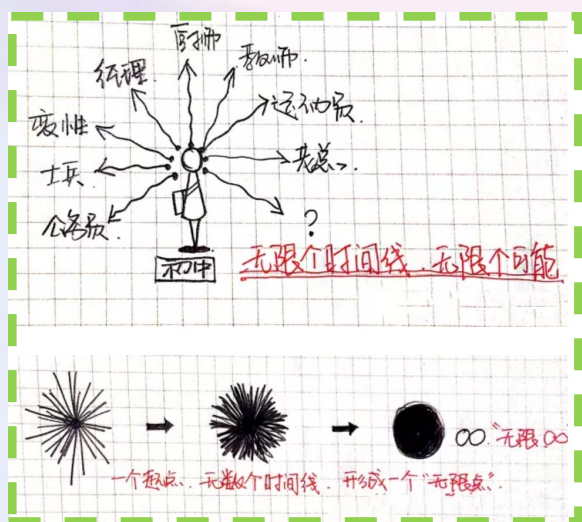 厨师
教师.
经理.
运动员
变性
老总.
士兵.
公务员.
?
初中
无限个时间线.无限个可能
∞."无限∞
一个起点.无数个时间线.形成一个"无限点".